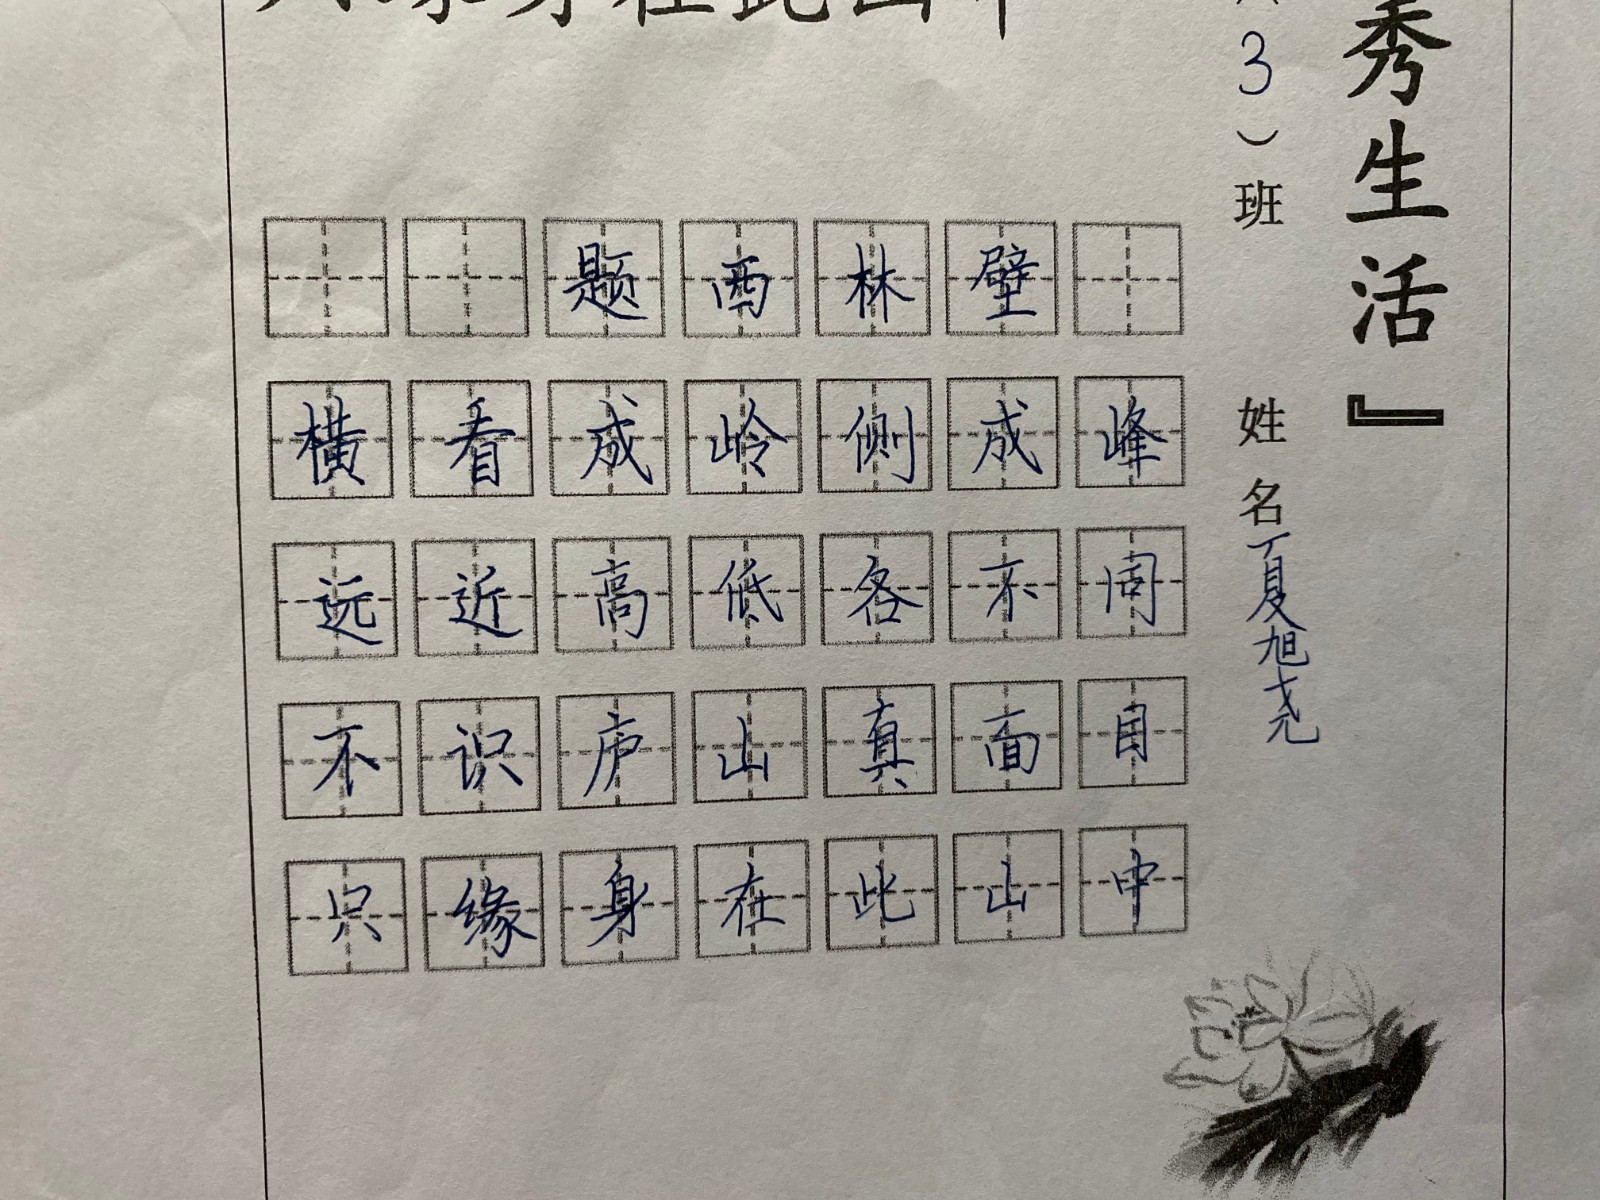 只缘身在此山中
题西林壁
横看成岭侧成峰
远近高低各不同
不识庐山真面目
只缘身在此山中
秀生活』
3）班 姓名夏旭尧